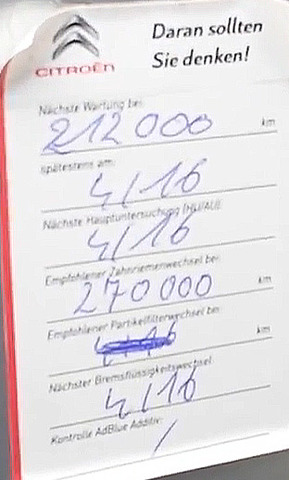 CITROËN
Daran sollten
Sie denken!
Nächste Wartung bei:
212 000 km
spätestens am:
4/16
Nächste Hauptuntersuchung (HU/AU):
4/16
Empfohlener Zahnriemenwechsel bei:
270 000 km
Empfohlener Partikelfilterwechsel bei:
km
Nächster Bremsflüssigkeitswechsel:
4/16
Kontrolle AdBlue Additiv:
/